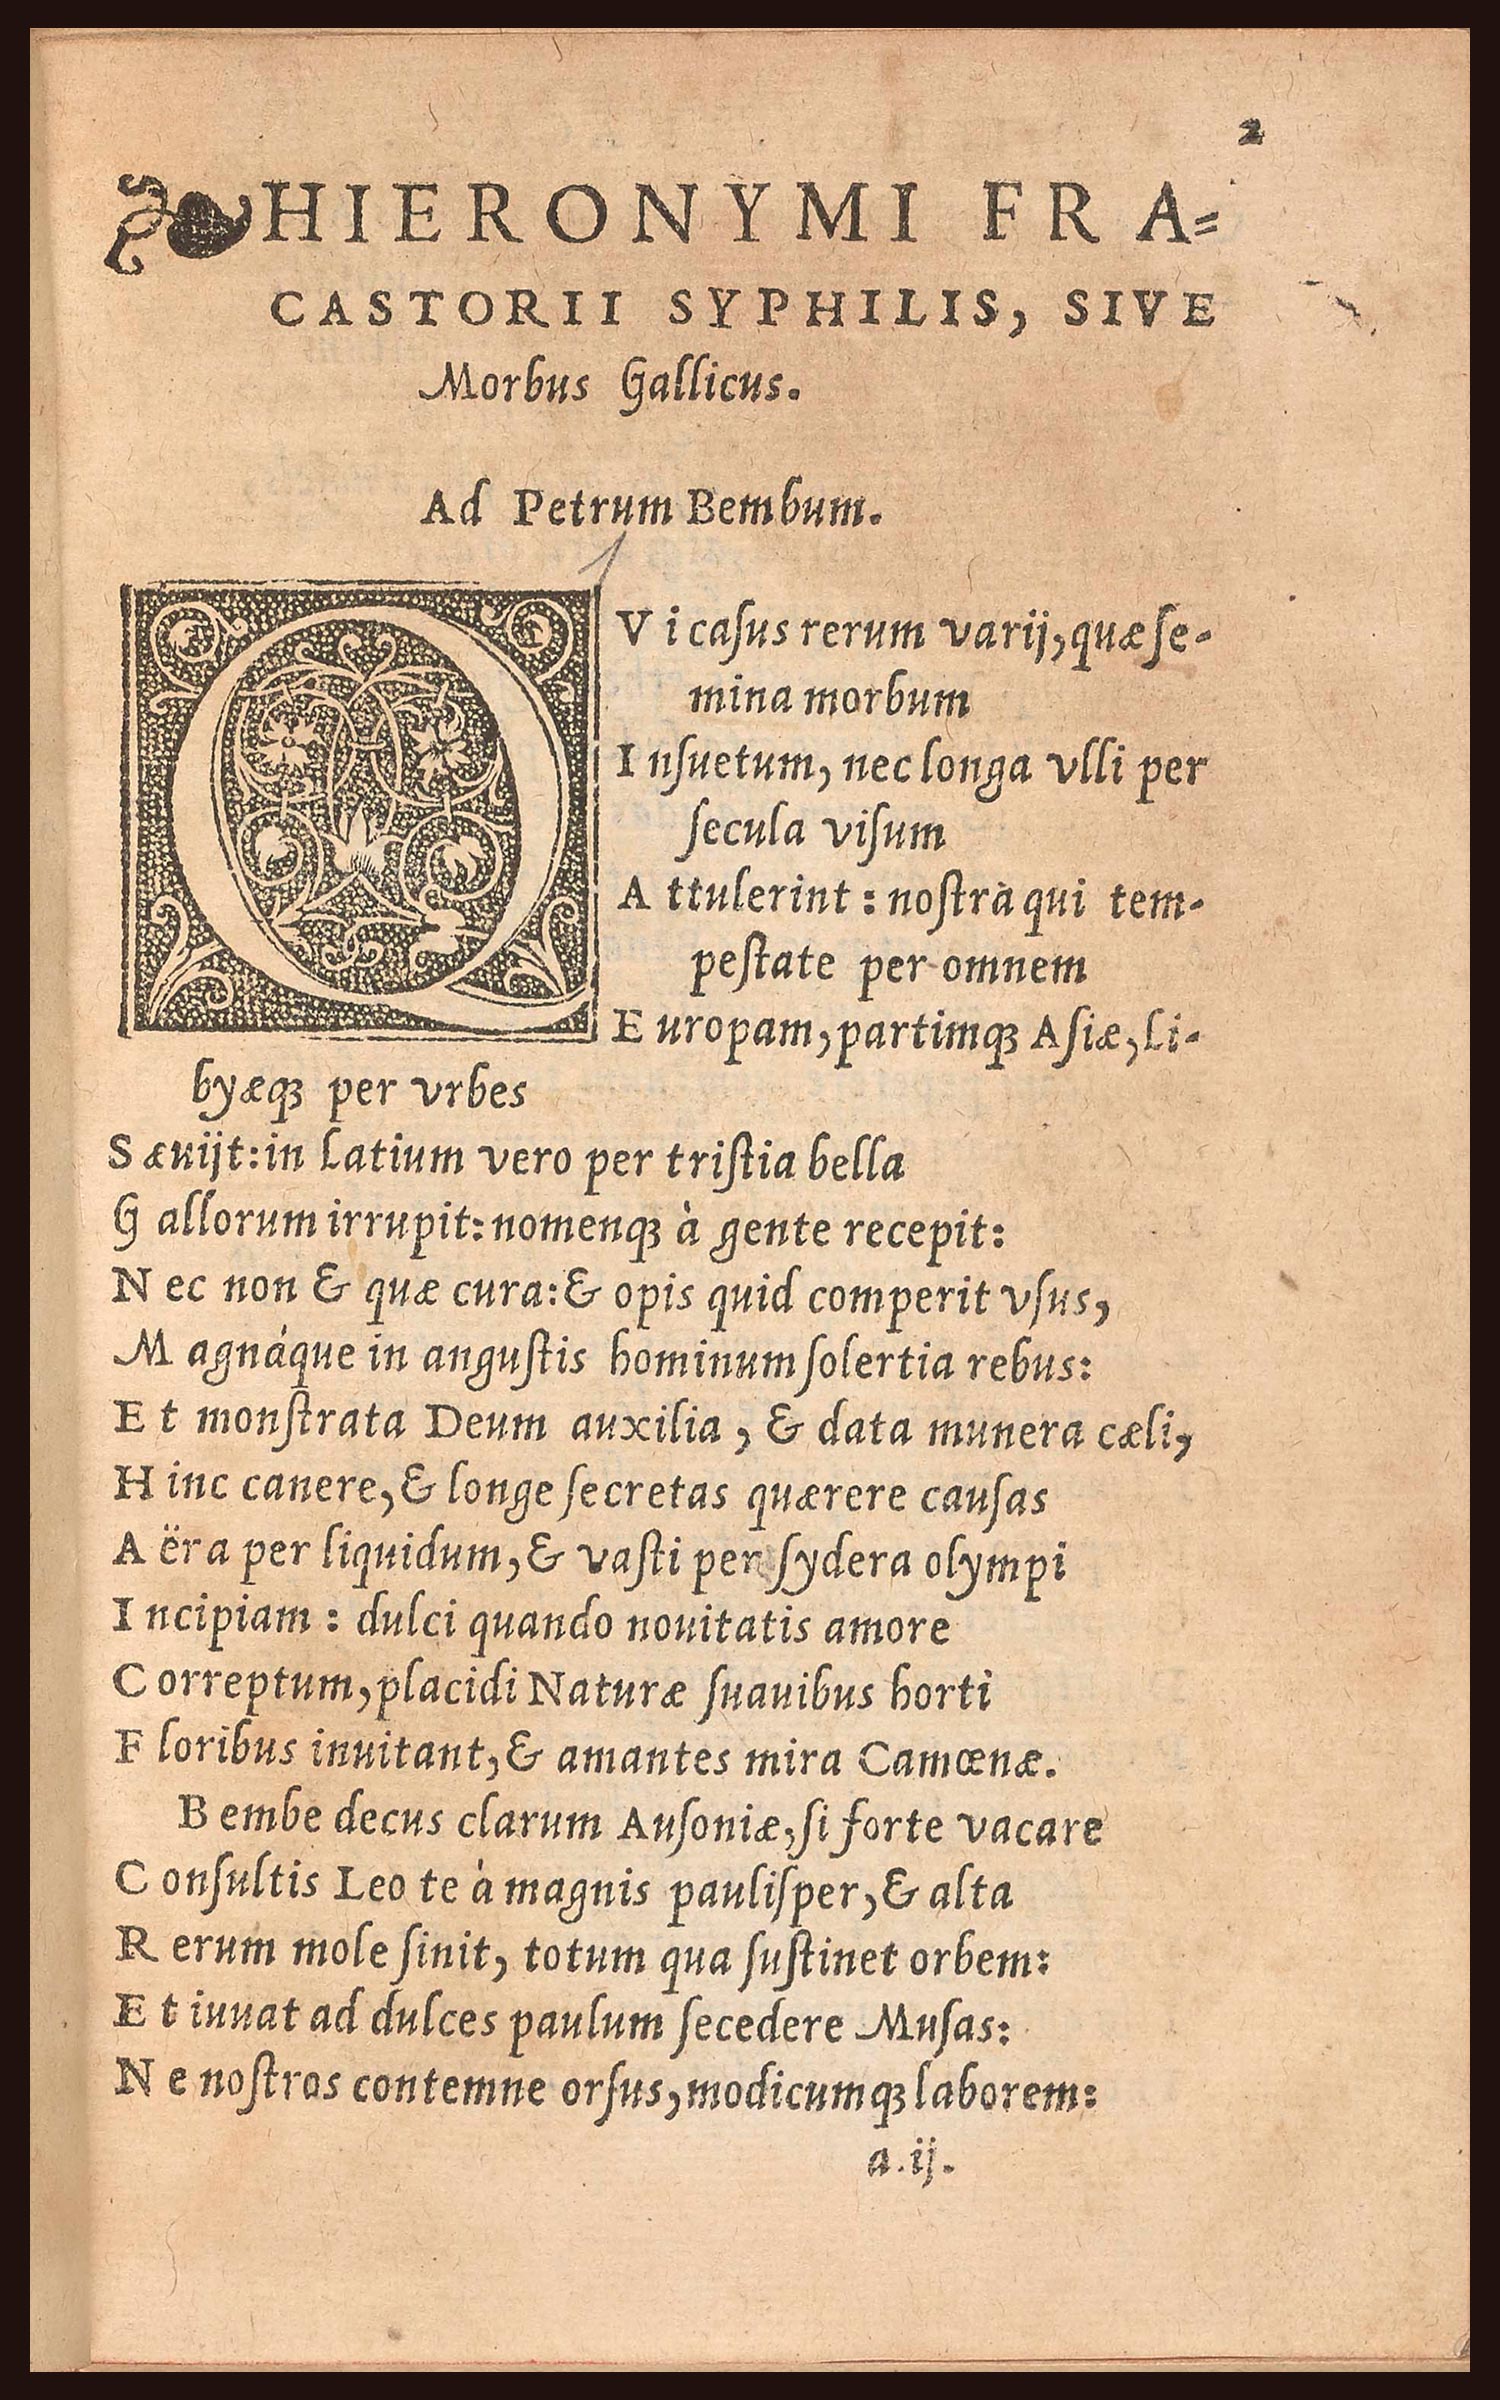 2
HIERONYMI FRA=
CASTORII SYPHILIS, SIVE
Morbus Gallicus.
Ad Petrum Bembum.
QVi casus rerum varij, quæ se-
mina morbum
Insuetum, nec longa vlli per
secula visum
Attulerint: nostrà qui tem-
pestate per omnem
Europam, partimqꝫ Asiæ, Li-
byæqꝫ per vrbes
Sæuijt: in Latium vero per tristia bella
Gallorum irrupit: nomenqꝫ à gente recepit:
Nec non & quæ cura: & opis quid comperit vsus,
Magnáque in angustis hominum solertia rebus:
Et monstrata Deum auxilia, & data munera cæli,
Hinc canere, & longe secretas quærere causas
Aëra per liquidum, & vasti per sydera olympi
Incipiam: dulci quando nouitatis amore
Correptum, placidi Naturæ suauibus horti
Floribus inuitant, & amantes mira Camœnæ.
Bembe decus clarum Ausoniæ, si forte vacare
Consultis Leo te à magnis paulisper, & alta
Rerum mole sinit, totum qua sustinet orbem:
Et iuuat ad dulces paulum secedere Musas:
Ne nostros contemne orsus, modicumqꝫ laborem:
a.ij.